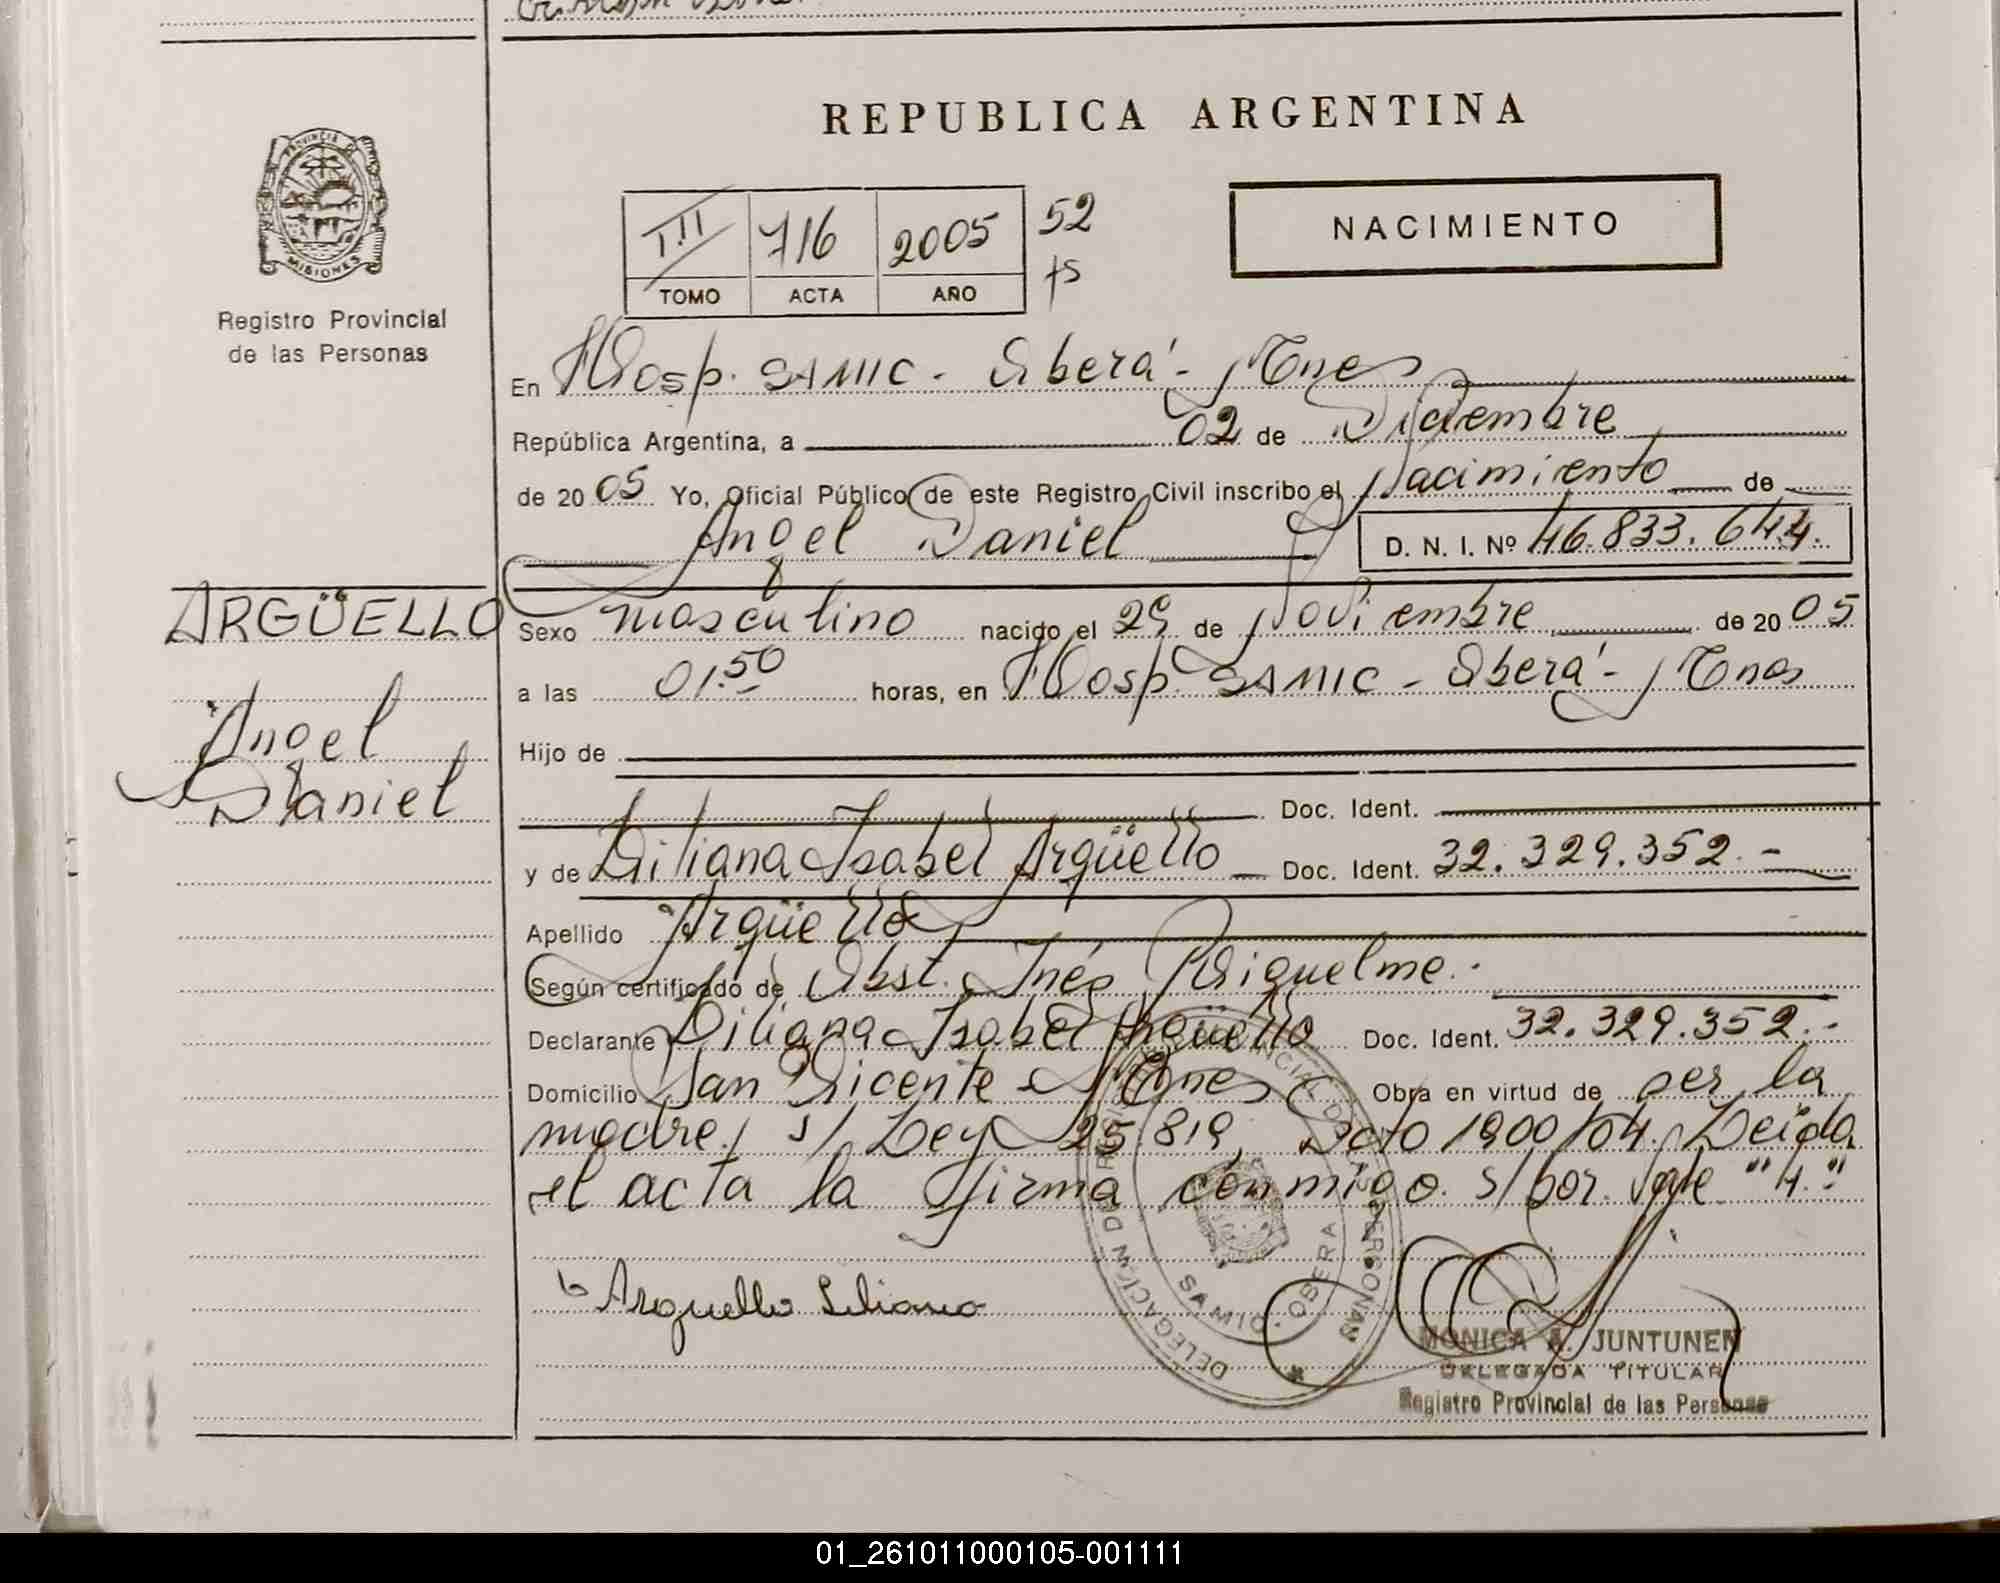 REPUBLICA ARGENTINA
PROVINCIA DE
MISIONES
Registro Provincial
de las Personas
NACIMIENTO
T.II 716 2005 52
TOMO ACTA AÑO
En Hosp. SAMIC - Oberá - Mnes
República Argentina, a 02 de Diciembre
de 20 05 Yo, Oficial Público de este Registro Civil inscribo el Nacimiento de
Angel Daniel D. N. I. Nº 46.833.644.
ARGÜELLO
Angel
Daniel
Sexo masculino nacido el 29 de Noviembre de 20 05
a las 01.50 horas, en Hosp. SAMIC - Oberá - Mnes
Hijo de
Doc. Ident.
y de Liliana Isabel Argüello Doc. Ident. 32.329.352.-
Apellido Argüello
Según certificado de Obst. Inés Riquelme.-
Declarante Liliana Isabel Argüello Doc. Ident. 32.329.352.-
Domicilio San Vicente - Mnes Obra en virtud de ser la
madre, s/ Ley 25.819, Dcto 1900/04. Leída
el acta la firma conmigo. s/bor. Vale "4."
Arguello Liliana
DELEGACION DE REGISTRO PROVINCIAL DE LAS PERSONAS
SAMIC - OBERA
MONICA A. JUNTUNEN
DELEGADA TITULAR
Registro Provincial de las Personas
01_261011000105-001111